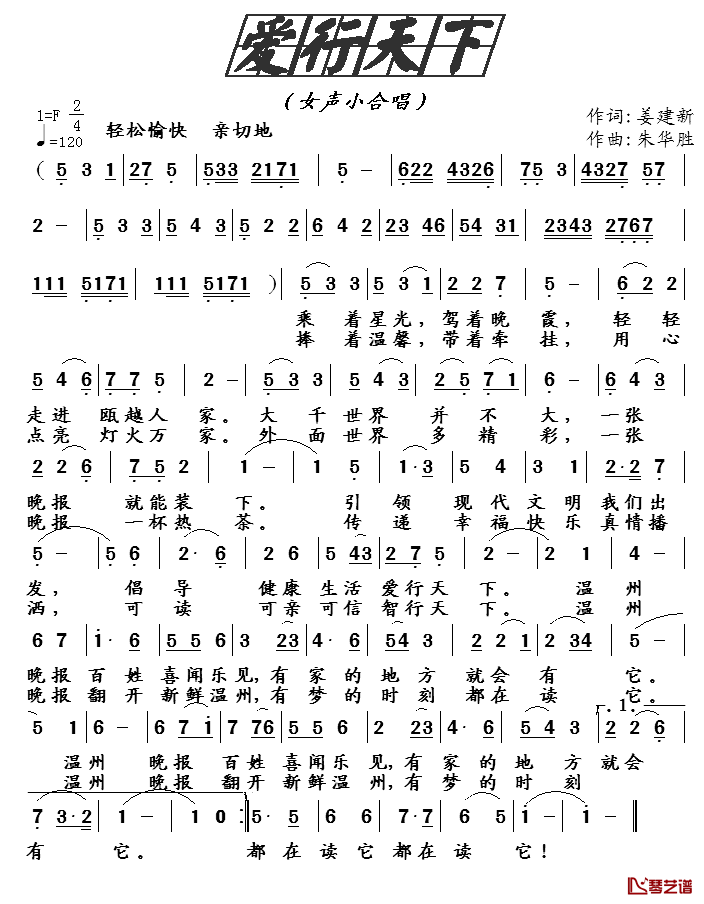 爱行天下
（女声小合唱）
1=F 2/4
♩=120 轻松愉快 亲切地
作词：姜建新
作曲：朱华胜
（5 3 1 | 27 5 | 533 2171 | 5 - | 622 4326 | 75 3 | 4327 57 |
2 - | 5 3 3 | 5 4 3 | 5 2 2 | 6 4 2 | 23 46 | 54 31 | 2343 2767 |
111 5171 | 111 5171 ）| 5 3 3 | 5 3 1 | 2 2 7 | 5 - | 6 2 2 |
乘 着星光，驾着晚 霞，轻 轻
捧 着温馨，带着牵 挂，用 心
5 4 6 | 7 7 5 | 2 - | 5 3 3 | 5 4 3 | 2 5 7 1 | 6 - | 6 4 3 |
走进 瓯越人 家。大 千世界 并 不 大，一张
点亮 灯火万 家。外 面世界 多 精 彩，一张
2 2 6 | 7 5 2 | 1 - | 1 5 | 1·3 | 5 4 | 3 1 | 2·2 7 |
晚报 就能装 下。引 领 现代文明我们出
晚报 一杯热 茶。传 递 幸福快乐真情播
5 - | 5 6 | 2· 6 | 2 6 | 5 43 | 2 7 5 | 2 - | 2 1 | 4 - |
发，倡导 健康生活爱行天 下。温州
洒，可读 可亲可信智行天 下。温州
6 7 | 1· 6 | 5 5 6 | 3 23 | 4· 6 | 5 4 3 | 2 2 1 | 2 34 | 5 - |
晚报百姓喜闻乐见，有家的地方就会有 它。
晚报翻开新鲜温州，有梦的时刻都在读 它。
1.
5 1 | 6 - | 6 7 1 | 7 76 | 5 5 6 | 2 23 | 4· 6 | 5 4 3 | 2 2 6 |
温州 晚报 百姓喜闻乐见，有家的地方就会
温州 晚报 翻开新鲜温州，有梦的时刻
7 3·2 | 1 - | 1 0 :| 5·5 | 6 6 | 7·7 | 6 5 | 1 - | 1 - ‖
有 它。 都在读它都在读它！
琴艺谱